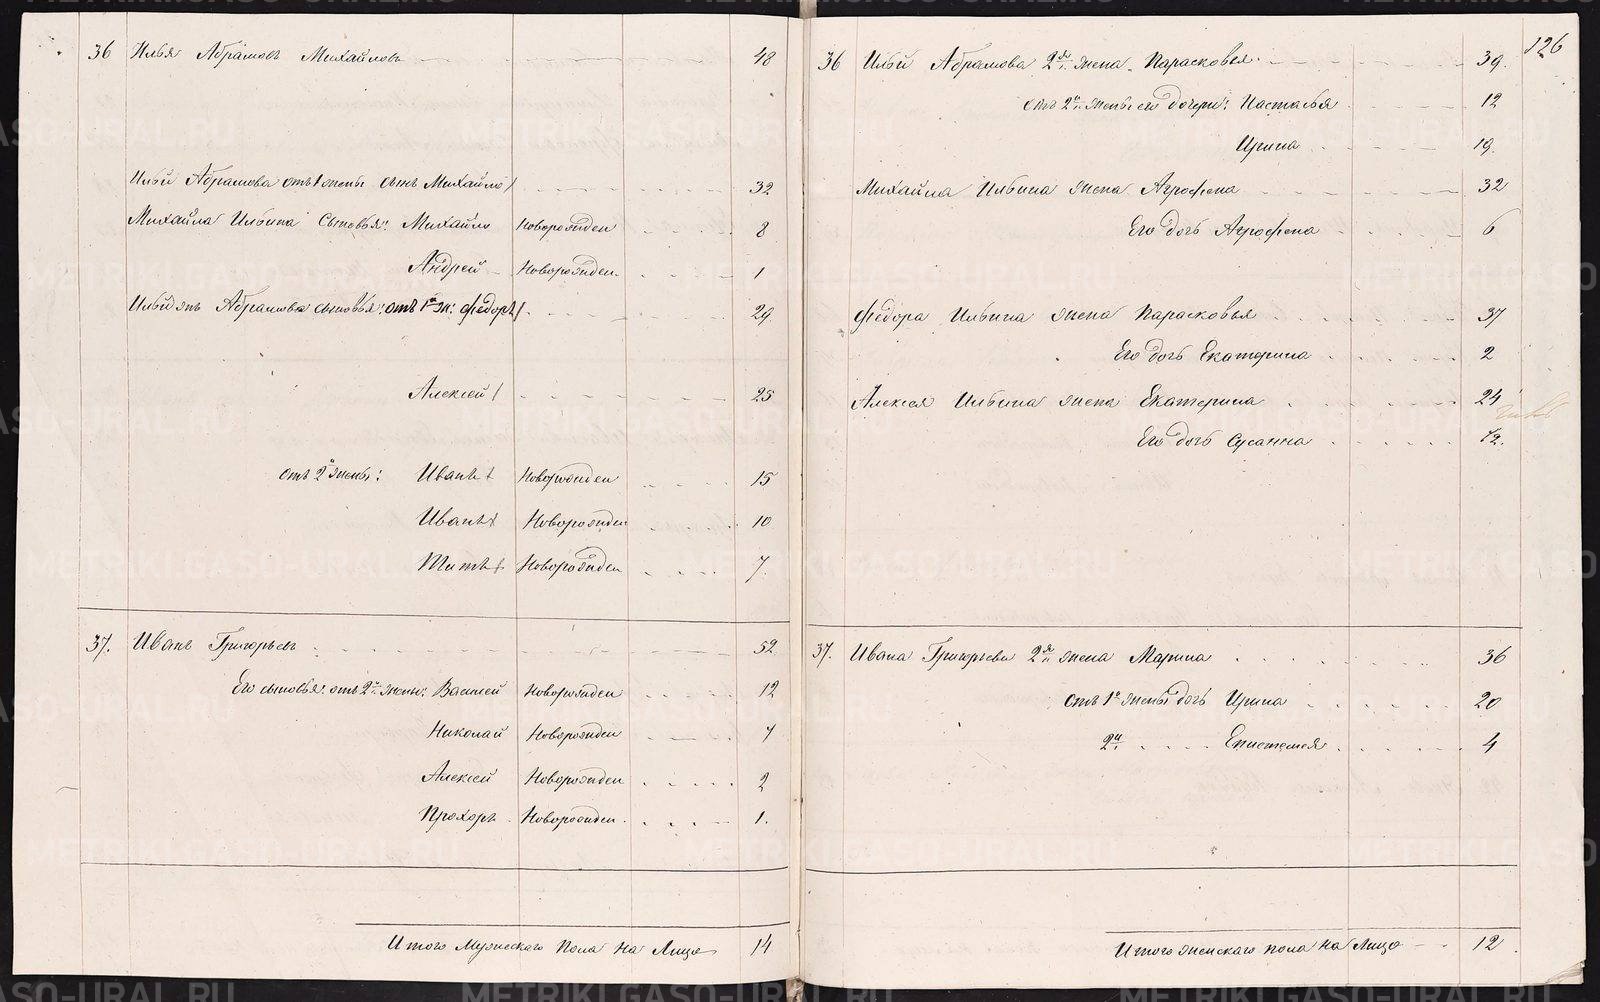 126
36 Илья Абрамовъ Михайловъ 48
Ильи Абрамова отъ 1 жены сынъ Михайло 32
Михайла Ильина сыновья: Михайло Новорожден 8
Андрей Новорожден. 1
Абрамова сыновья: отъ 1й ж: Федоръ 29
Алексей 25
отъ 2й жены: Иванъ Новорожден 15
Иванъ Новорожден 10
Титъ Новорожден 7
37. Иванъ Григорьевъ 52
Его сыновья отъ 2й жены: Василей Новорожден 12
Николай Новорожден 7
Алексей Новорожден 2
Прохоръ Новорожден 1.
Итого Мужескаго Пола на Лицо 14
36 Ильи Абрамова 2я жена Парасковья 39.
отъ 2й жены его дочери: Настасья 12
Ирина 19.
Михайла Ильина жена Агрофена 32
Его дочь Агрофена 6
Федора Ильина жена Парасковья 37
Его дочь Екатерина 2
Алексея Ильина жена Екатерина 24
Его дочь Сусанна 12.
37. Ивана Григорьева 2я жена Марина 36
отъ 1й жены дочь Ирина 20
2й Епистемея 4
Итого женскаго пола на Лицо 12
METRIKI.GASO-URAL.RU